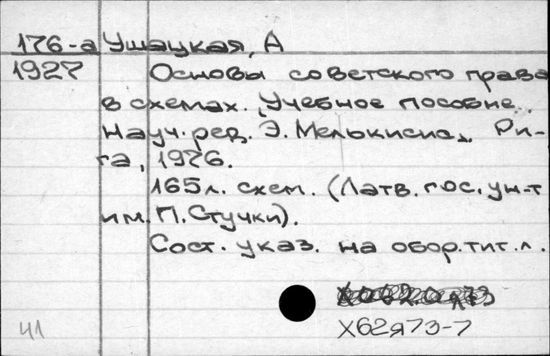 176-а Ушацкая, А
1927 Основы советского права
в схемах. Учебное пособие.
Науч. ред. Э. Мелькисис. Ри-
га, 1976.
165л. схем. (Латв. гос. ун-т
им. П. Стучки).
Сост. указ. на обор. тит. л.
Х62я73-7
41